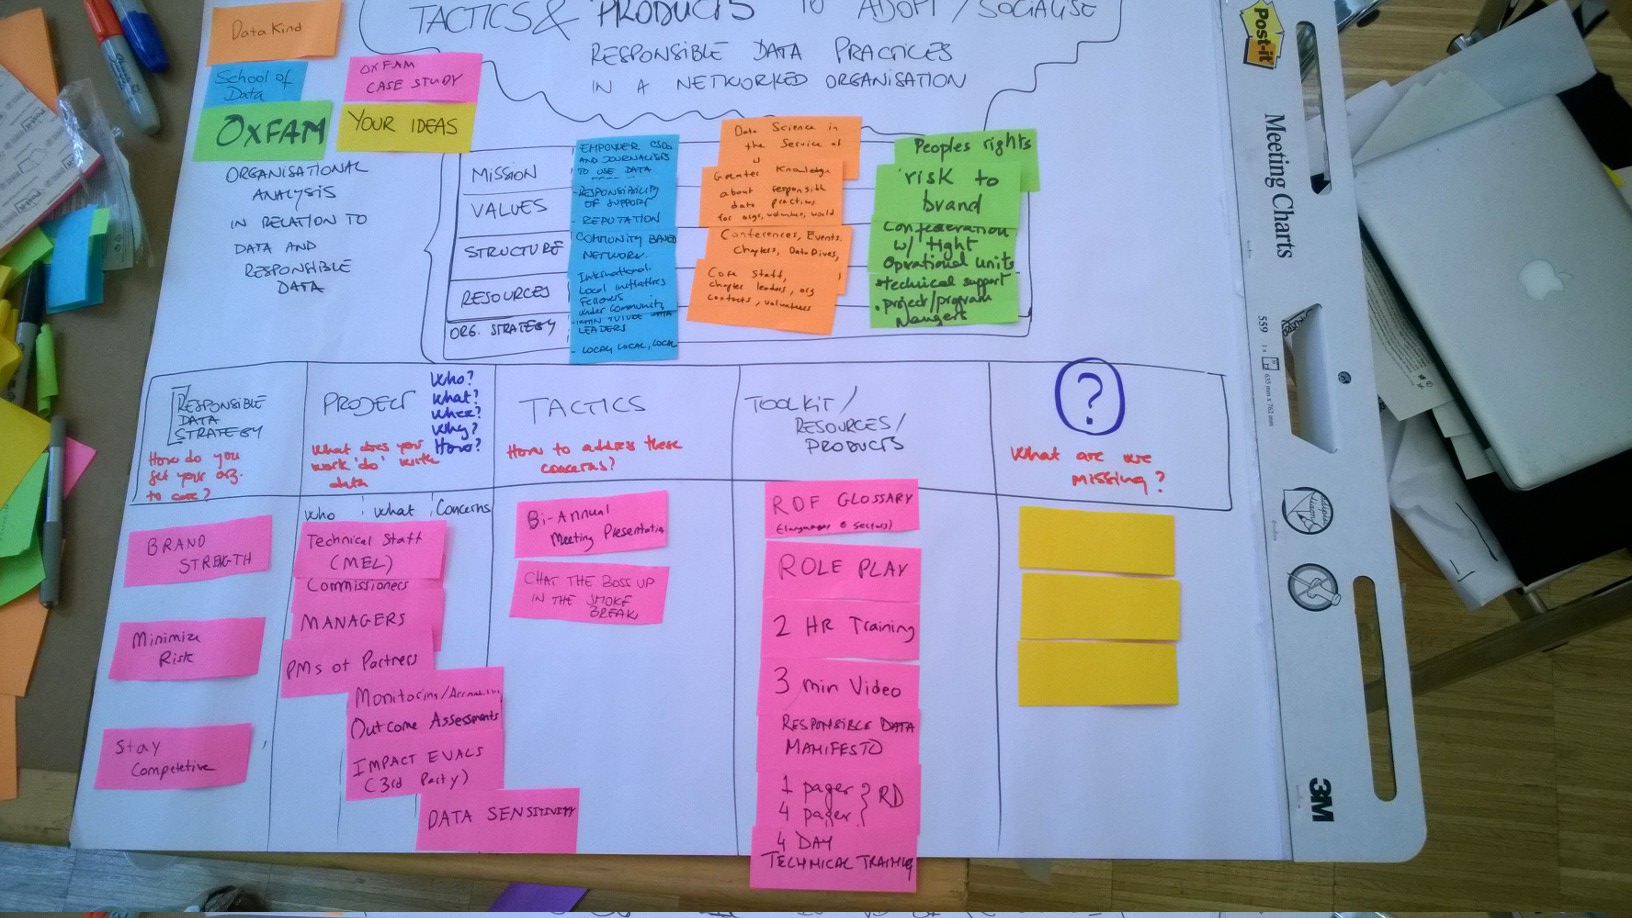 TACTICS & PRODUCTS TO ADOPT / SOCIALISE
RESPONSIBLE DATA PRACTICES
IN A NETWORKED ORGANISATION
DataKind
School of
Data
OXFAM
CASE STUDY
OXFAM
YOUR IDEAS
ORGANISATIONAL
ANALYSIS
IN RELATION TO
DATA AND
RESPONSIBLE
DATA
MISSION
VALUES
STRUCTURE
RESOURCES
ORG. STRATEGY
EMPOWER CSOs
AND JOURNALISTS
TO USE DATA
- RESPONSIBILITY
OF SUPPORT
- REPUTATION
COMMUNITY BASED
NETWORK.
International.
Local initiatives
Fellows
wider Community
LEADERS
- LOCAL, LOCAL, LOCAL
Data Science in
the Service of
Greater Knowledge
about responsible
data practices
for orgs, volunteers, world
Conferences, Events,
Chapters, DataDives,
Core Staff,
chapter leaders, org
contacts, volunteers
Peoples rights
risk to
brand
Confederation
w/ tight
Operational units
• technical support
• project/program
Managers
RESPONSIBLE
DATA
STRATEGY
How do you
get your org.
to care?
PROJECT
Who?
What?
Where?
Why?
How?
What does your
work 'do' with
data
TACTICS
How to address these
concerns?
TOOLKIT /
RESOURCES /
PRODUCTS
?
What are we
missing?
who what Concerns
BRAND
STRENGTH
Minimize
Risk
Stay
Competetive
Technical Staff
(MEL)
Commissioners
MANAGERS
PMs of Partners
Monitoring/
Outcome Assessments
IMPACT EVALS
(3rd Party)
DATA SENSITIVITY
Bi-Annual
Meeting Presentation
CHAT THE BOSS UP
IN THE SMOKE
BREAK
RDF GLOSSARY
(languages & sectors)
ROLE PLAY
2 HR Training
3 min Video
RESPONSIBLE DATA
MANIFESTO
1 pager } RD
4 pager }
4 DAY
TECHNICAL TRAINING
Post-it
Meeting Charts
559
635 mm x 762 mm
3M